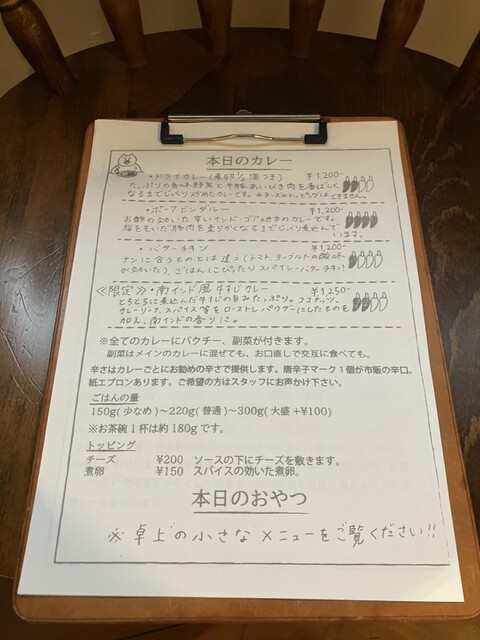 本日のカレー
・ドライカレー(煮卵½個つき) ¥1,200-
たっぷりの香味野菜と牛豚あいびき肉を香ばしく
なるまでじっくり炒めたカレーです。※チーズのトッピングはできません。
・ポークビンダルー ¥1,200-
お酢の効いた辛いインド・ゴア地方のカレーです。
脂をぬいだ豚肉を柔らかくなるまでじっくり煮込んで
います。
・バターチキン ¥1,200-
ナンに合うものとは違う(トマト、ヨーグルトの酸味
が効いたり)、ごはんにぴったりスパイシーバターチキン!
≪限定≫・南インド風牛すじカレー ¥1,250-
とろとろに煮込んだ牛すじの旨みたっぷり。ココナッツ、
カレーリーフ、スパイス等をローストしパウダーにしたものを
加え、南インドの香りに。
※全てのカレーにパクチー、副菜が付きます。
副菜はメインのカレーに混ぜても、お口直しで交互に食べても。
辛さはカレーごとにお勧めの辛さで提供します。唐辛子マーク1個が市販の辛口。
紙エプロンあります。ご希望の方はスタッフにお声かけ下さい。
ごはんの量
150g(少なめ)~220g(普通)~300g(大盛+¥100)
※お茶碗1杯は約180gです。
トッピング
チーズ ¥200 ソースの下にチーズを敷きます。
煮卵 ¥150 スパイスの効いた煮卵。
本日のおやつ
※卓上の小さなメニューをご覧ください!!